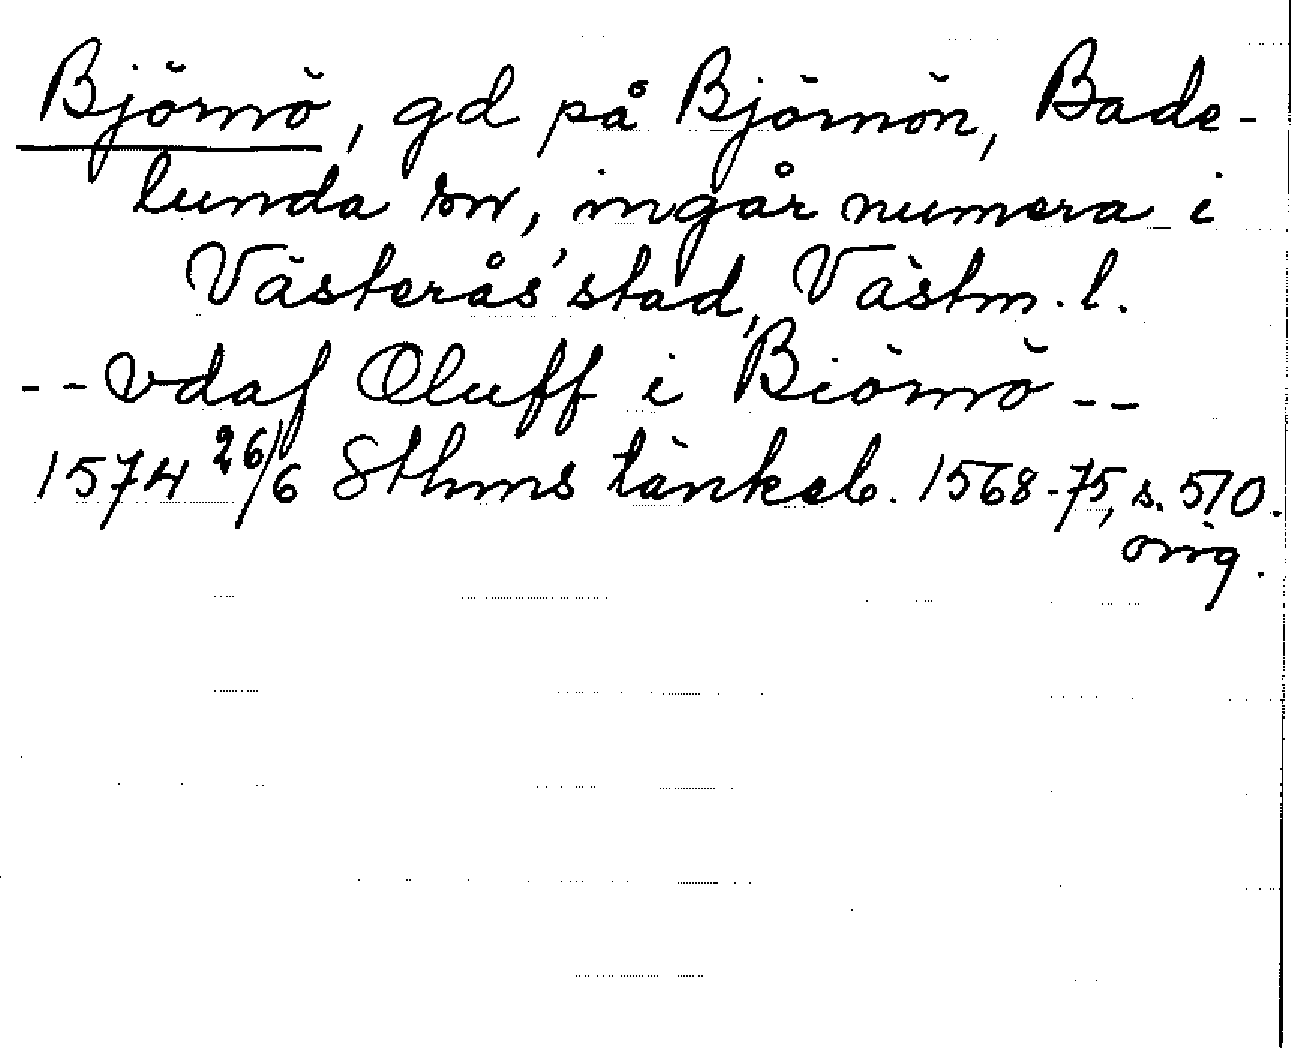 Björnö, gd på Björnön, Bade-
lunda sn, ingår numera i
Västerås' stad, Västm. l.
-- vdaf Oluff i Biörnö --
1574 26/6 Sthms tänkeb. 1568-75, s. 570.
orig.